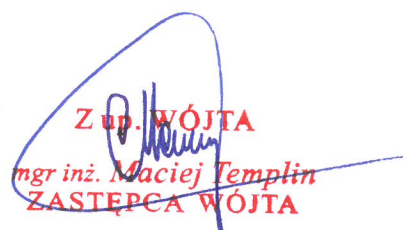 Z up. WÓJTA
mgr inż. Maciej Templin
ZASTĘPCA WÓJTA